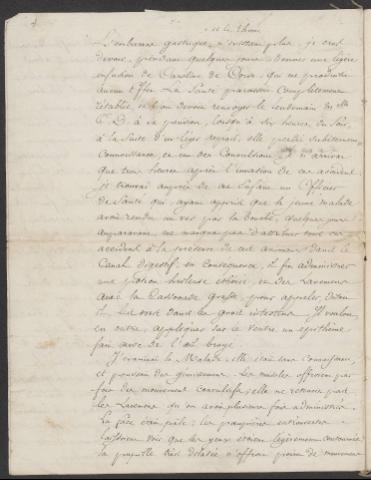 L'embarras gastrique n'existant plus, je crus
devoir, pendant quelques jours donner une légère
infusion de Coraline de Corse, qui ne produisit
aucun effet. La Santé paraissant complettement
rétablie, on devoit renvoyer le lendemain du M
à la pension, lorsqu'à six heures du Soir,
à la Suite d'un léger repas, elle perdit subitement
connoissance, et eut des Convulsions. Je n'arrivai
que trois heures après l'invasion de cet accident.
je trouvai auprès de cet Enfant un officier
de Santé qui, ayant apprit que la jeune malade
avoit rendu un ver par la bouche, quelques jours
auparavant, ne manqua pas d'attribuer tout cet
accident à la présence de ces animaux dans le
Canal digestif; en conséquence, il fit administrer
une potion huileuse éthérée, et des lavemens
avec la Cassonade grasse, pour appeler, disoit
il, les vers dans les gros intestins. Il voulut,
en outre, appliquer sur le ventre un épithème
fait avec de l'ail broyé.
J'examinai la Malade, elle était sans connoissance,
et poussait des gémissemens. Les muscles offroient par
fois des mouvemens convulsifs; elle ne rendait pas
les lavemens qu'on avoit plusieurs fois administrés.
La face étoit pâle; les paupières entrouvertes
laissoient voir que les yeux étoient légèrement contournés
la pupille très dilatée n'offroit point de mouvement